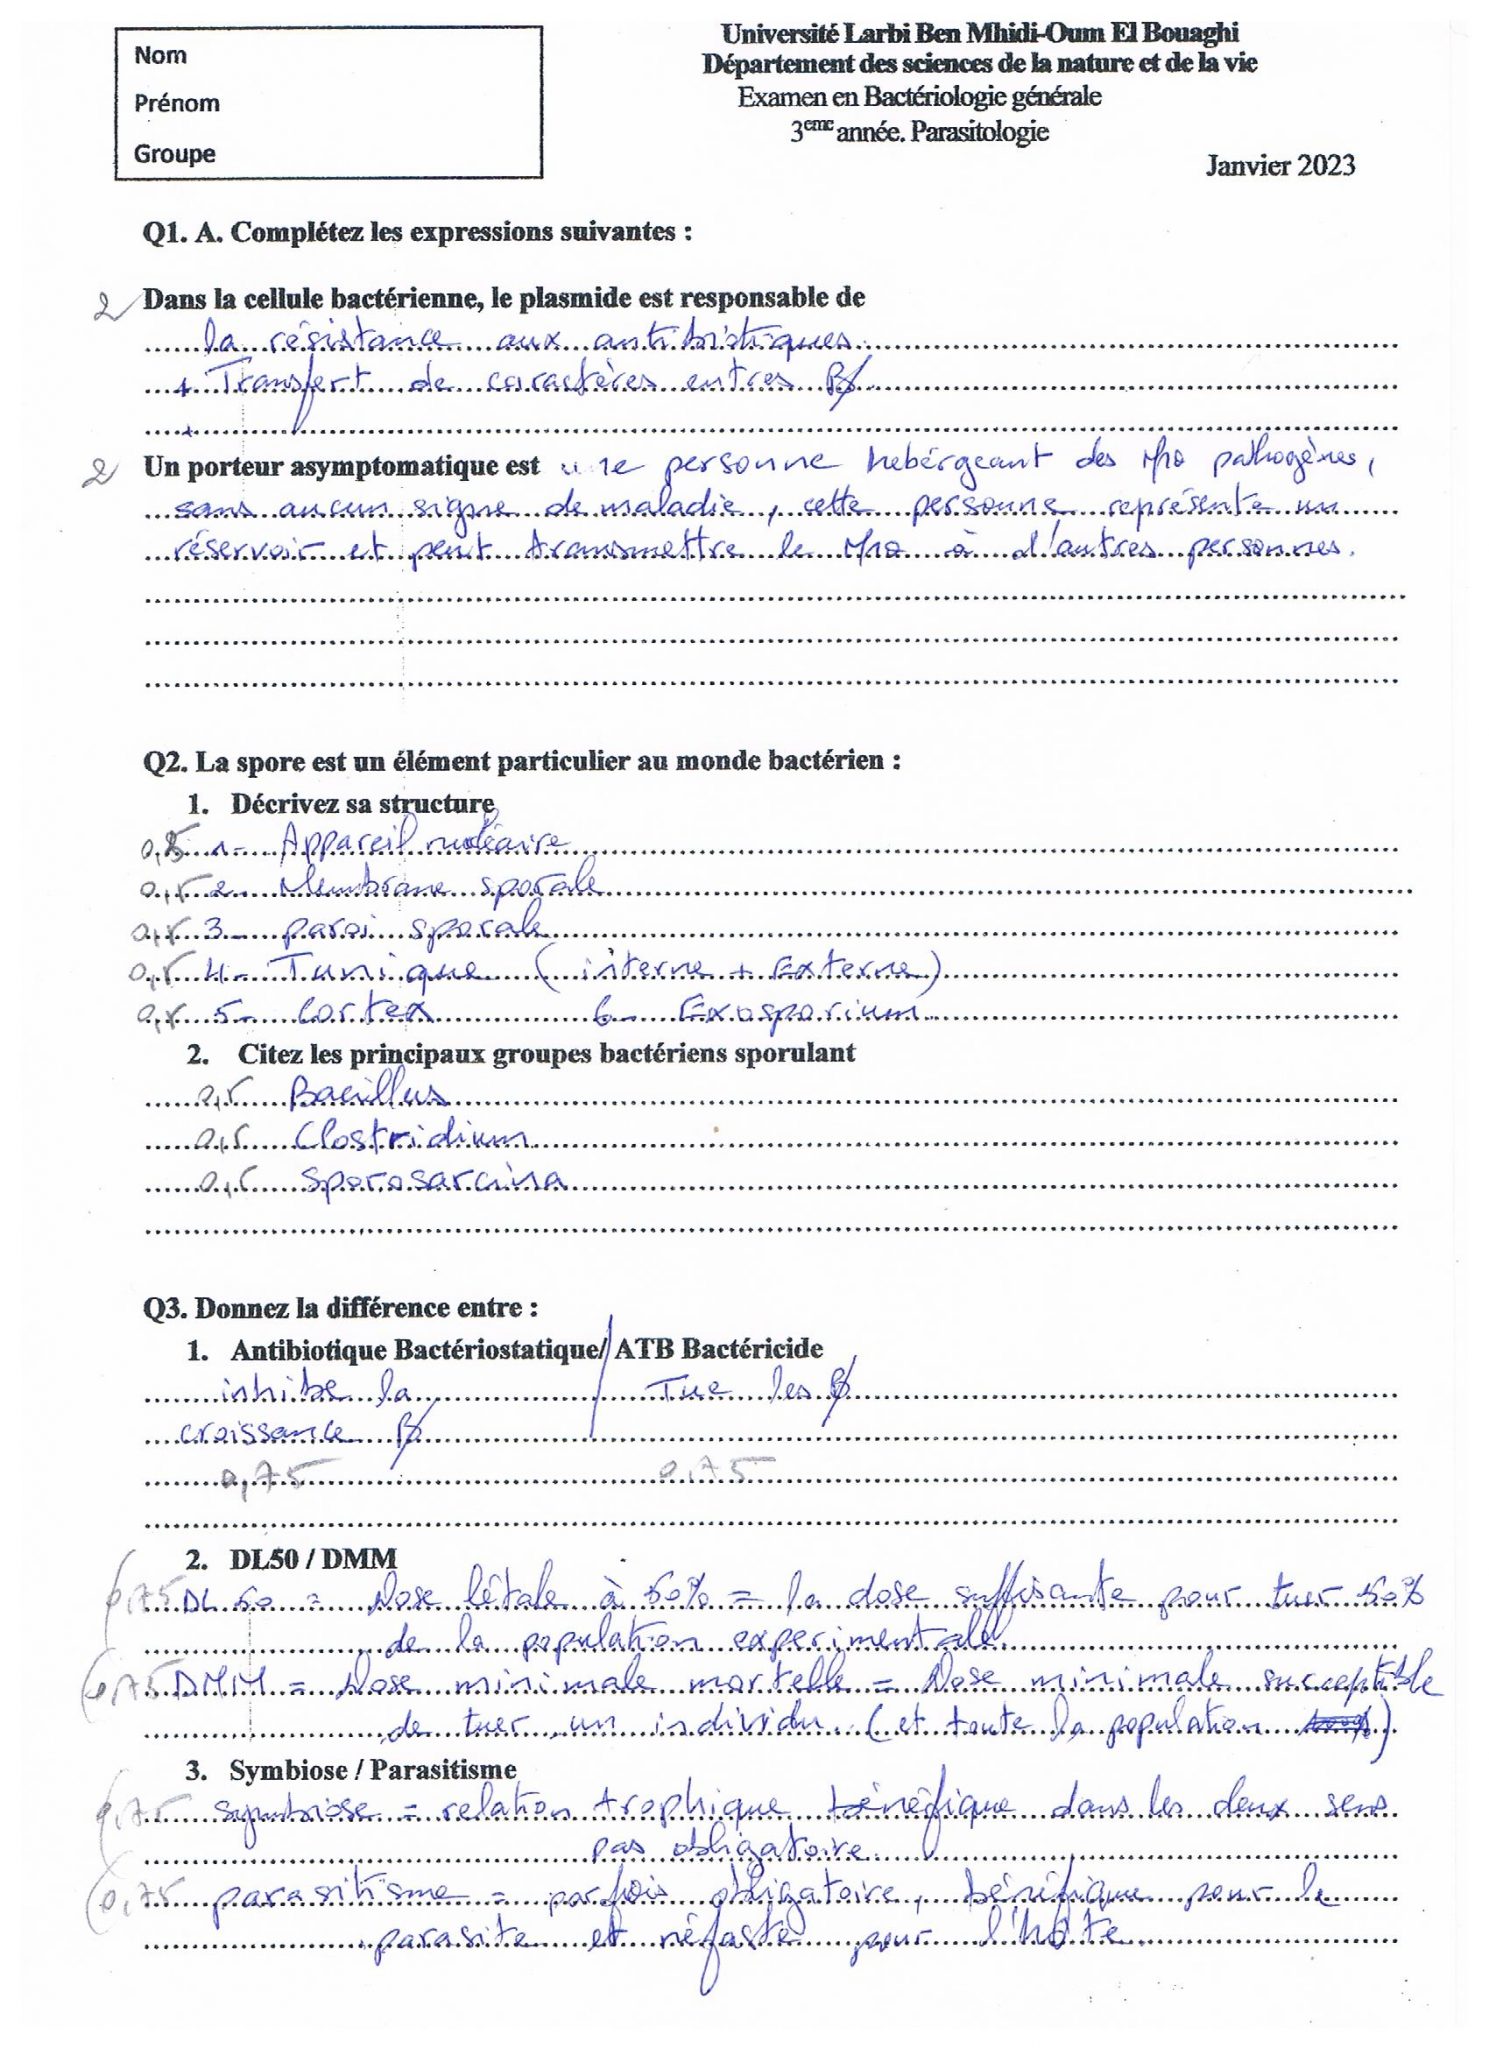 Nom
Prénom
Groupe
Université Larbi Ben Mhidi-Oum El Bouaghi
Département des sciences de la nature et de la vie
Examen en Bactériologie générale
3eme année. Parasitologie
Janvier 2023
Q1. A. Complétez les expressions suivantes :
2 Dans la cellule bactérienne, le plasmide est responsable de
la résistance aux antibiotiques.
+ Transfert de caractères entres B/
+
2 Un porteur asymptomatique est une personne hebérgeant des M/o pathogènes,
sans aucun signe de maladie, cette personne représente un
réservoir et peut transmettre le M/o à d'autres personnes.
Q2. La spore est un élément particulier au monde bactérien :
1. Décrivez sa structure
0,5 1- Appareil nucléaire
0,5 2- Membrane sporale
0,5 3- paroi sporale
0,5 4- Tunique (interne + Externe)
0,5 5- Cortex 6- Exosporium
2. Citez les principaux groupes bactériens sporulant
0,5 Bacillus
0,5 Clostridium
0,5 Sporosarcina
Q3. Donnez la différence entre :
1. Antibiotique Bactériostatique/ ATB Bactéricide
inhibe la / Tue les B/
croissance B/
0,75 0,75
2. DL50 / DMM
0,75 DL 50 = Dose létale à 50% = la dose suffisante pour tuer 50%
de la population experimentale.
0,75 DMM = Dose minimale mortelle = Dose minimale succeptible
de tuer un individu. (et toute la population )
3. Symbiose / Parasitisme
0,75 symbiose = relation trophique bénéfique dans les deux sens
pas obligatoire.
0,75 parasitisme = parfois obligatoire, bénéfique pour le
parasite et néfaste pour l'hôte.